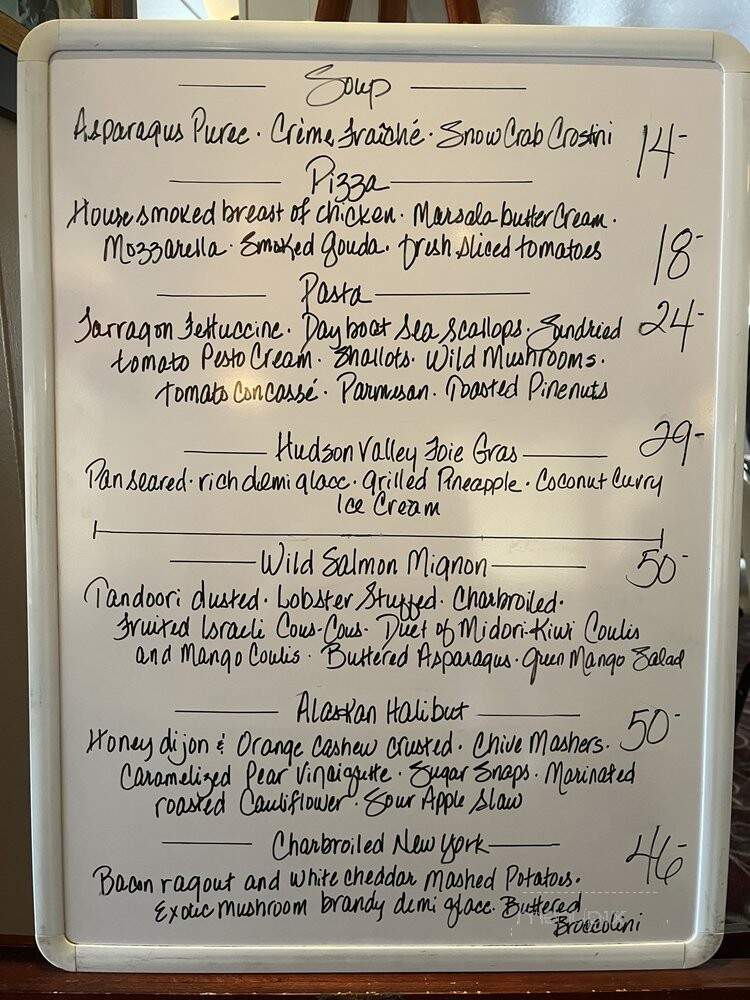 Soup
Asparagus Puree · Crème Fraîché · Snow Crab Crostini 14-
Pizza
House smoked breast of chicken · Marsala butter Cream ·
Mozzarella · Smoked Gouda · fresh sliced tomatoes 18-
Pasta
Tarragon Fettuccine · Day boat Sea Scallops · Sundried 24-
tomato Pesto Cream · Shallots · Wild Mushrooms ·
tomato Concassé · Parmesan · Toasted Pinenuts
Hudson Valley Foie Gras 29-
Pan seared · rich demi glace · grilled Pineapple · Coconut Curry
Ice Cream
Wild Salmon Mignon 50-
Tandoori dusted · Lobster Stuffed · Charbroiled ·
Fruited Israeli Cous-Cous · Duet of Midori-Kiwi Coulis
and Mango Coulis · Buttered Asparagus · Green Mango Salad
Alaskan Halibut 50-
Honey dijon & Orange Cashew Crusted · Chive Mashers ·
Caramelized Pear Vinaigrette · Sugar Snaps · Marinated
roasted Cauliflower · Sour Apple Slaw
Charbroiled New York 46-
Bacon ragout and white cheddar Mashed Potatoes ·
Exotic mushroom brandy demi glace · Buttered
Broccolini